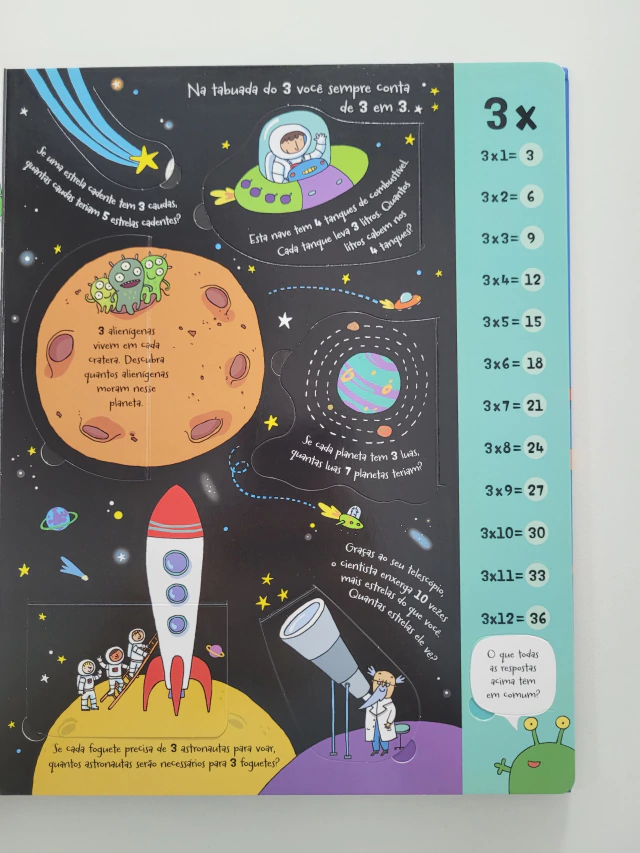 Na tabuada do 3 você sempre conta
de 3 em 3.
Se uma estrela cadente tem 3 caudas,
quantas caudas teriam 5 estrelas cadentes?
Esta nave tem 4 tanques de combustível.
Cada tanque leva 3 litros. Quantos
litros cabem nos
4 tanques?
3 alienígenas
vivem em cada
cratera. Descubra
quantos alienígenas
moram nesse
planeta.
Se cada planeta tem 3 luas,
quantas luas 7 planetas teriam?
Graças ao seu telescópio,
o cientista enxerga 10 vezes
mais estrelas do que você.
Quantas estrelas ele vê?
Se cada foguete precisa de 3 astronautas para voar,
quantos astronautas serão necessários para 3 foguetes?
3x
3x1= 3
3x2= 6
3x3= 9
3x4= 12
3x5= 15
3x6= 18
3x7= 21
3x8= 24
3x9= 27
3x10= 30
3x11= 33
3x12= 36
O que todas
as respostas
acima têm
em comum?